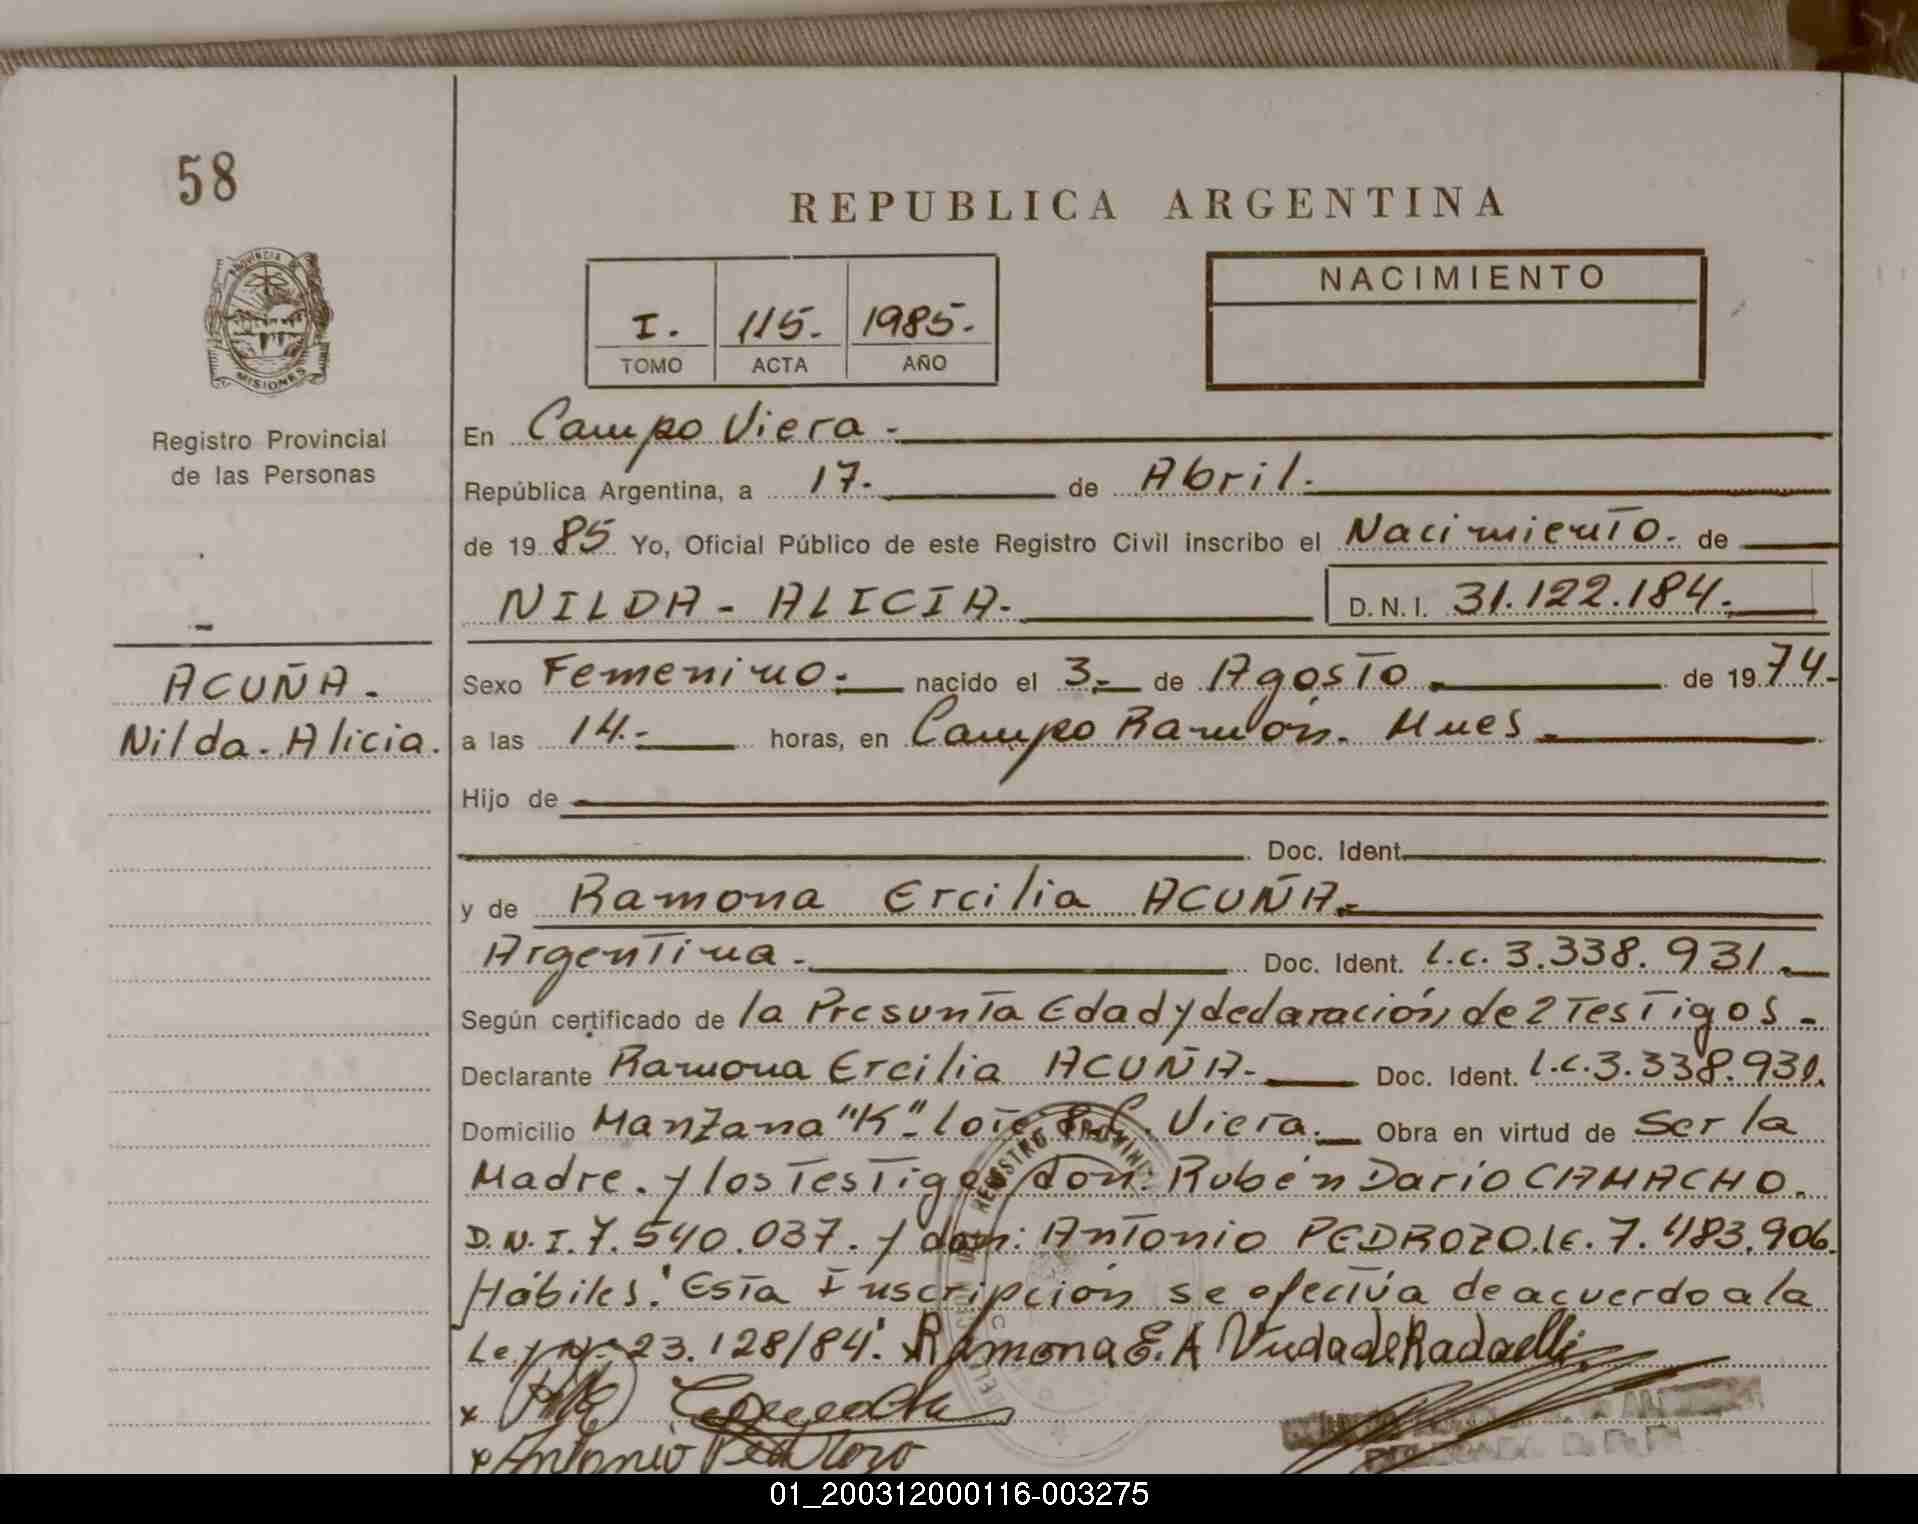 58
REPUBLICA ARGENTINA
PROVINCIA DE
MISIONES
I. 115. 1985.
TOMO ACTA AÑO
NACIMIENTO
Registro Provincial
de las Personas
En Campo Viera.
República Argentina, a 17. de Abril.
de 1985 Yo, Oficial Público de este Registro Civil inscribo el Nacimiento. de
NILDA - ALICIA. D.N.I. 31.122.184.
ACUÑA.
Nilda. Alicia.
Sexo Femenino. nacido el 3. de Agosto. de 1974.
a las 14. horas, en Campo Ramón. Mnes.
Hijo de
Doc. Ident.
y de Ramona Ercilia ACUÑA.
Argentina. Doc. Ident. l.c. 3.338.931.
Según certificado de la Presunta Edad y declaración de 2 Testigos.
Declarante Ramona Ercilia ACUÑA. Doc. Ident. l.c. 3.338.931.
Domicilio Manzana "K". lote 8. C. Viera. Obra en virtud de Ser la
Madre. y los Testigos don: Rubén Darío CAMACHO.
D.N.I. 7.540.037. y don: Antonio PEDROZO. l.e. 7.483.906.
Hábiles. Esta Inscripción se efectúa de acuerdo a la
Ley Nº 23.128/84. Ramona E. A Viuda de Radaelli
x
x Antonio Pedrozo
01_200312000116-003275